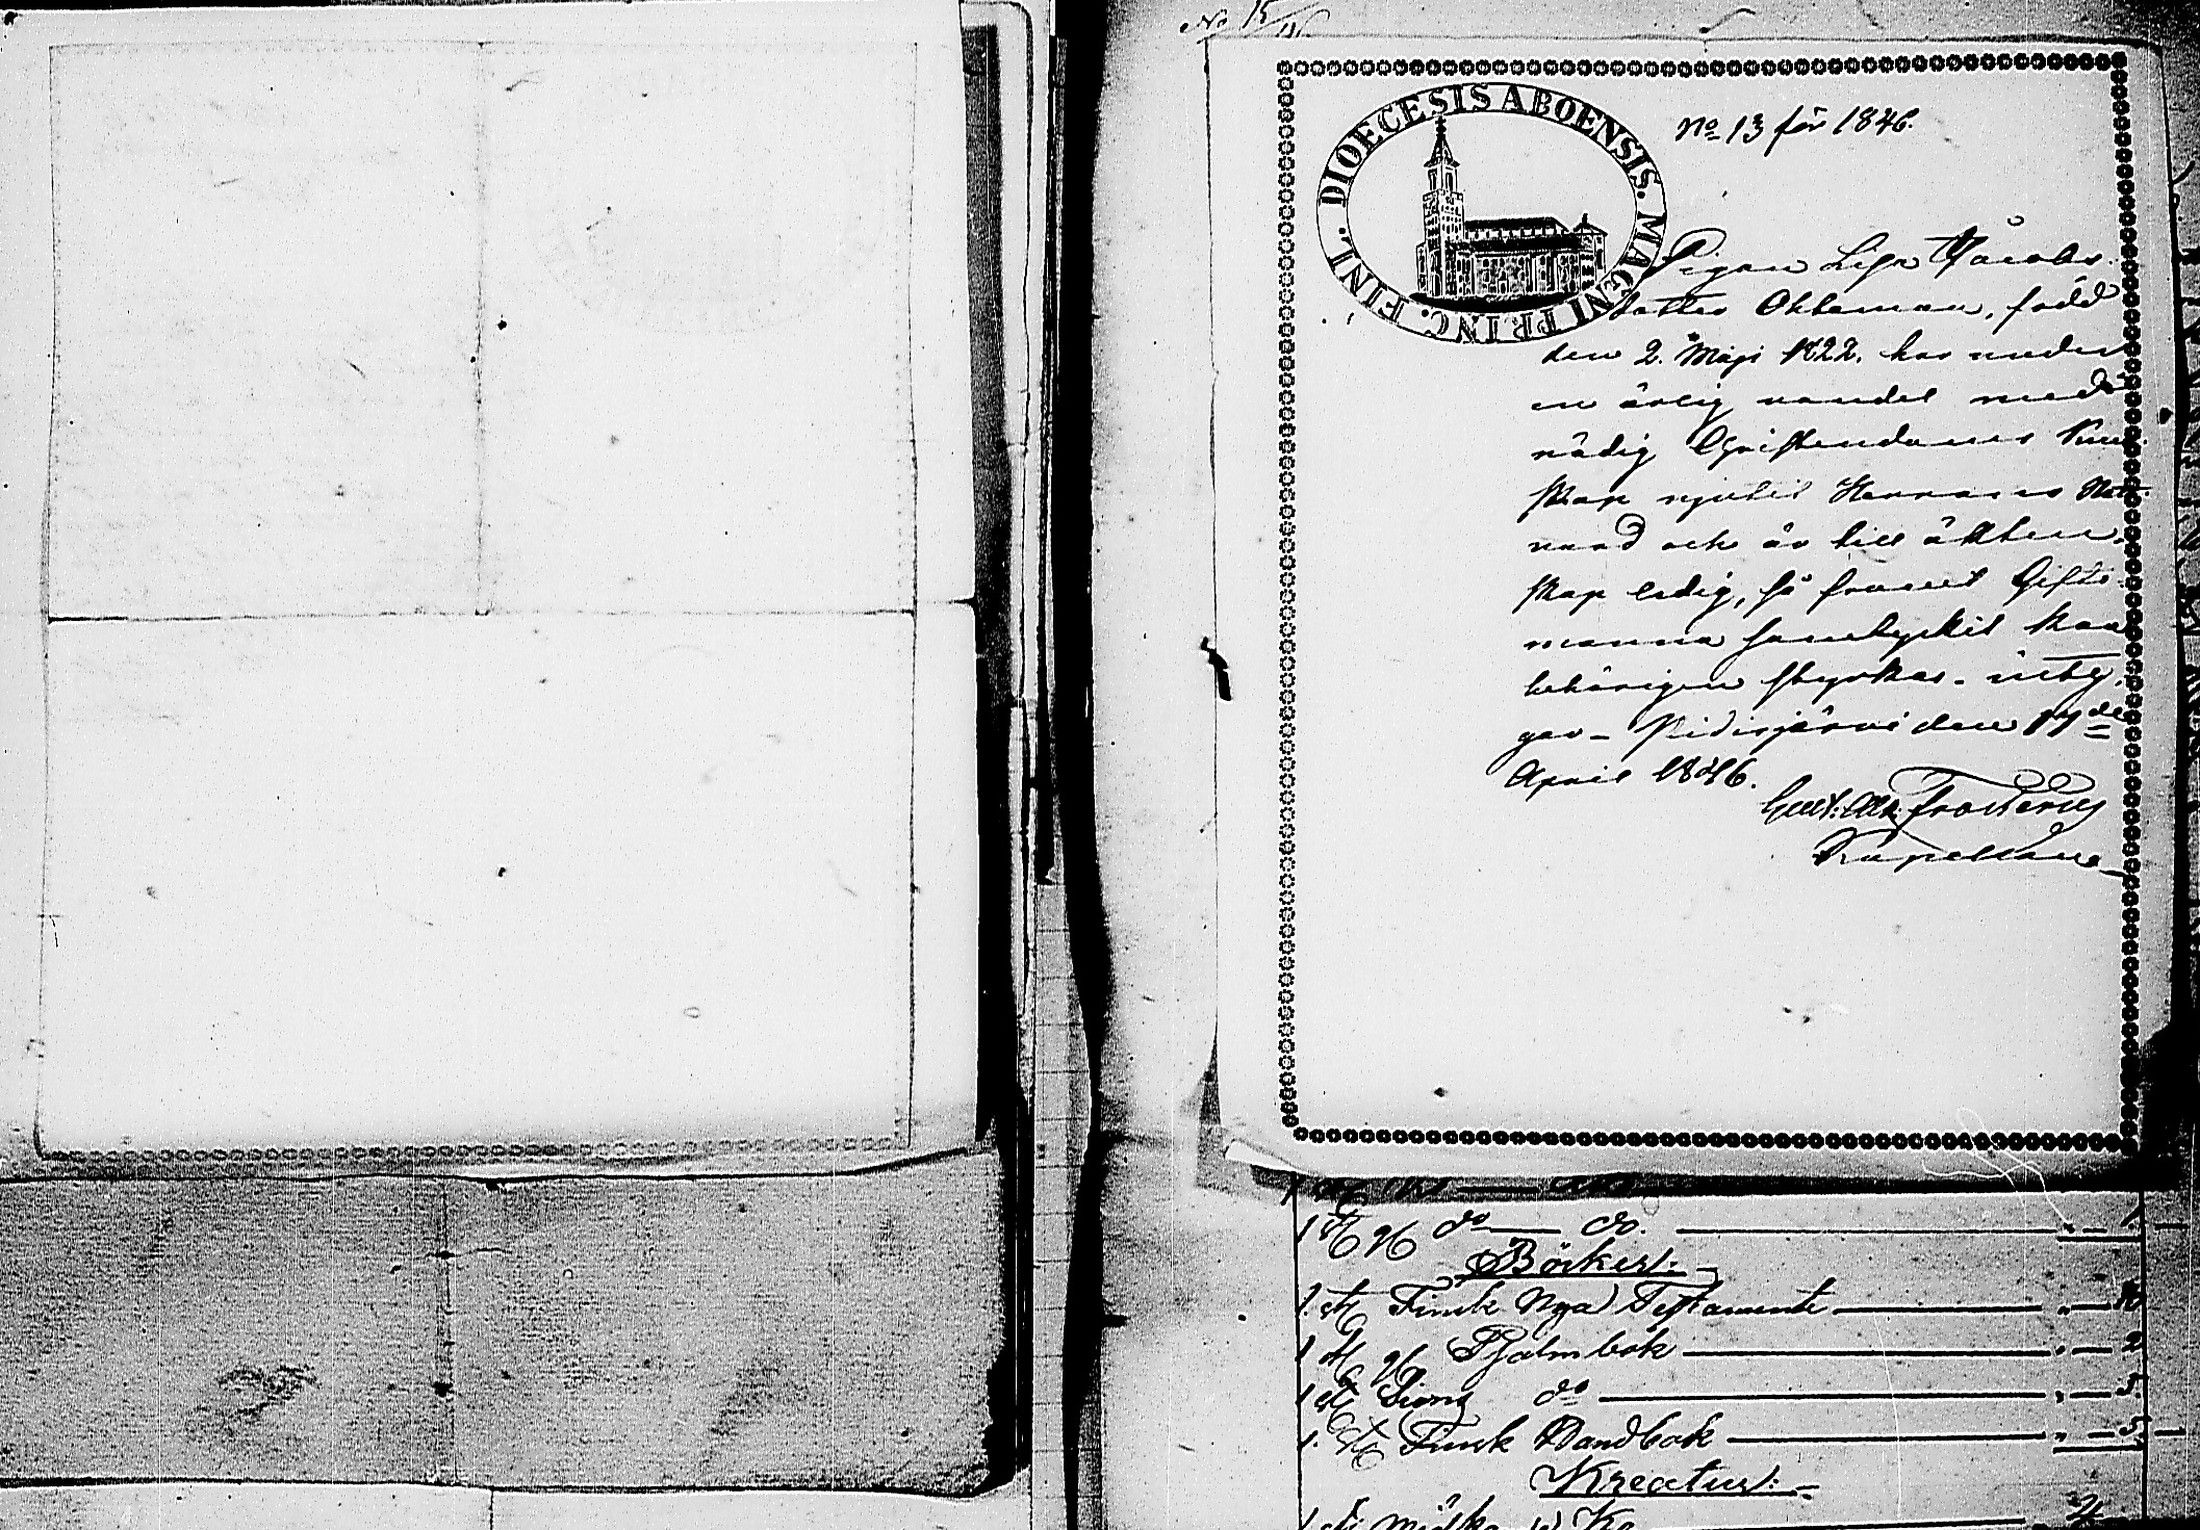 No 15/46
DIOECESIS ABOENSIS. MAGNI PRINC. FINL.
No 13 för 1846.
Pigan Lisa Jacobs
dotter Ohtamaa, född
den 2. Maji 1822, har under
en ärlig vandel med
nödig Christendoms kun-
skap njutit Herrans Natt-
vard och är till äkten-
skap ledig, så framt Gifto-
manna samtycket kan
behörigen styrkas. intÿ-
gar – Pidisjärvi den 17de
April 1846.
Gust. Alex. Frosterus
Kapellan
1 st do do.
Böcker:
1. st Finsk Nya Testamente
1 st Psalmbok 2
1 st Sions do
1. st Finsk Handbok
Kreatur:
1 st Ko